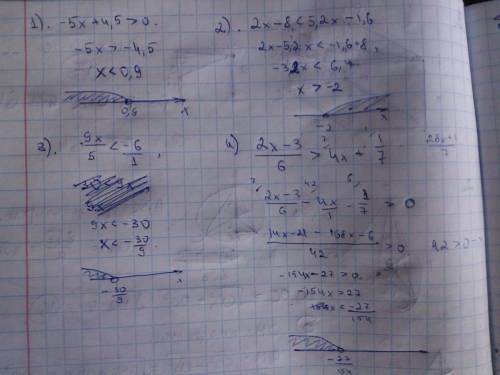 1). -5x+4,5>0.
-5x>-4,5
x<0,9
0,9 x
2). 2x-8<5,2x-1,6
2x-5,2x<-1,6+8,
-3,2x<6,4
x>-2
-2 x
3). 9x/5 < -6/1,
9x<-30
x<-30/9
-30/9 x
4) (2x-3)/6 > 4x + 1/7
(2x-3)/6 - 4x/1 - 1/7 > 0
(14x-21-168x-6)/42 > 0
-154x-27>0.
-154x>27
x<-27/154
-27/154